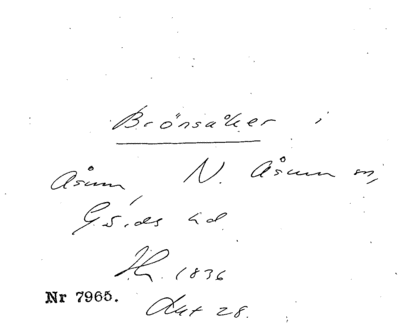 Brönsåker i
Åsum, N. Åsum sn,
Gärds hd
Hn. 1836
Nr 7965.
akt 28.